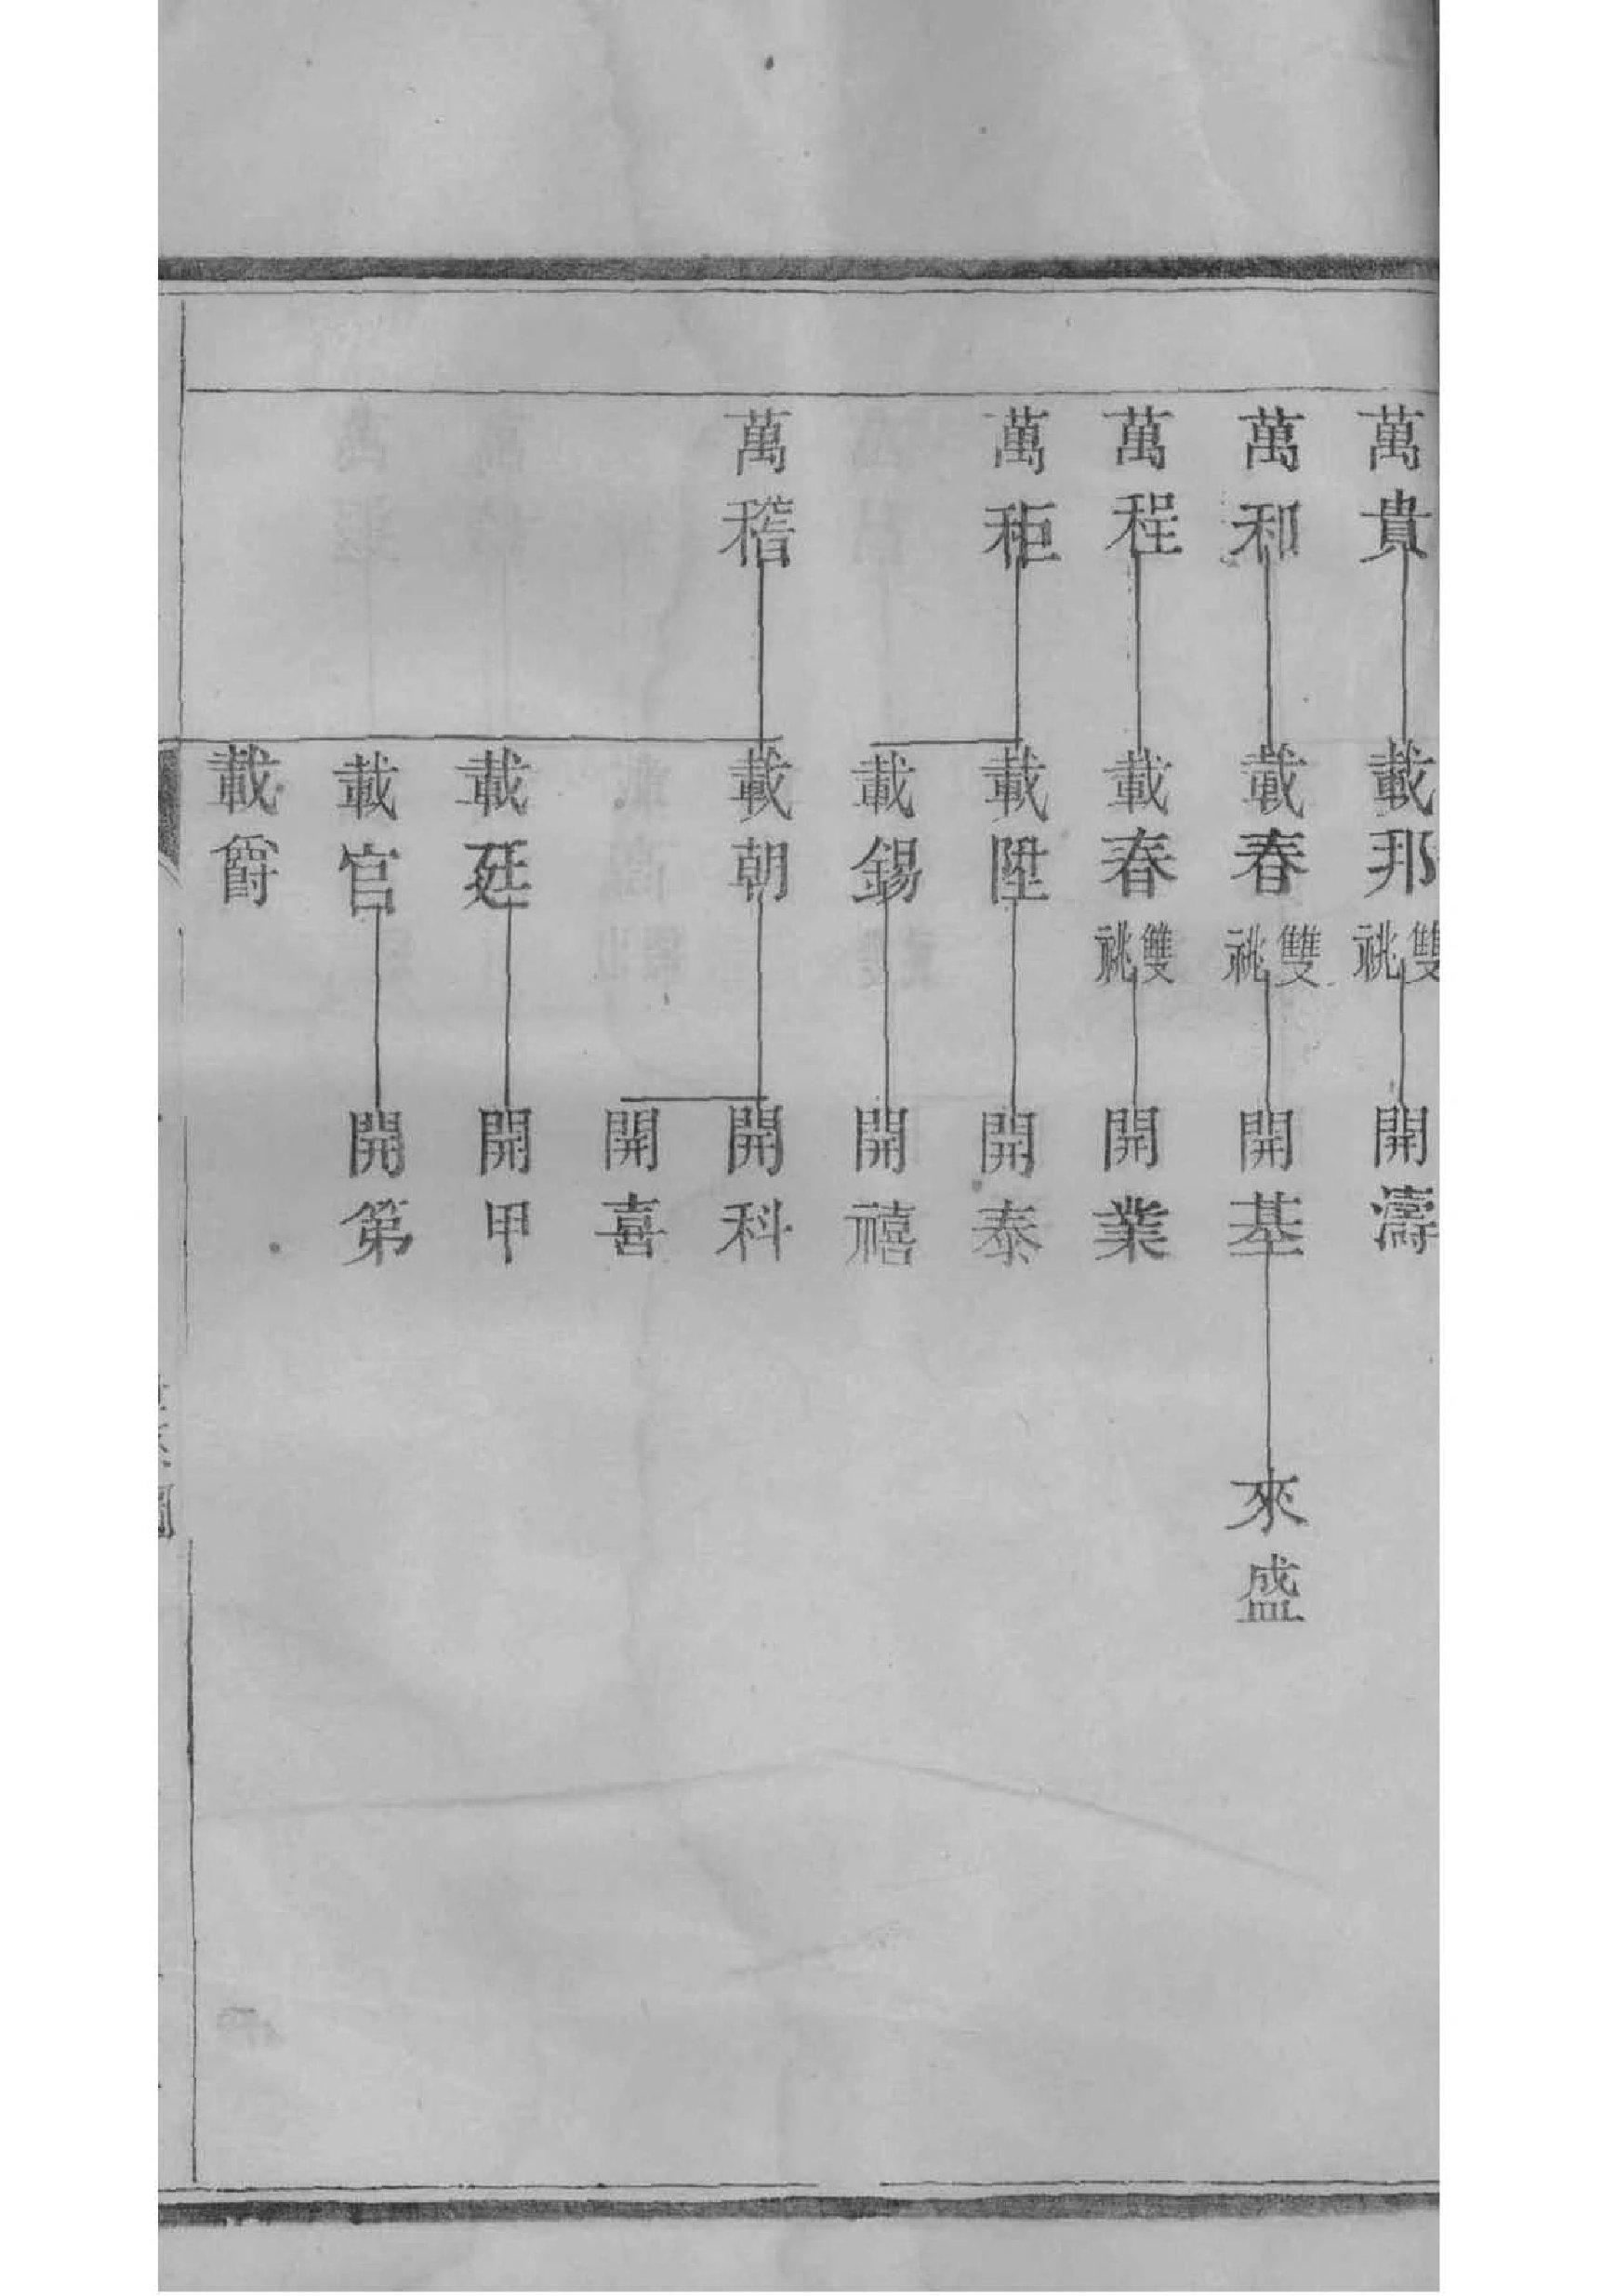 萬貴
載邦雙祧
開濤
萬和
載春雙祧
開基
來盛
萬程
載春雙祧
開業
萬秬
載陞
開泰
載錫
開禧
萬稽
載朝
開科
開喜
載廷
開甲
載官
開第
載爵